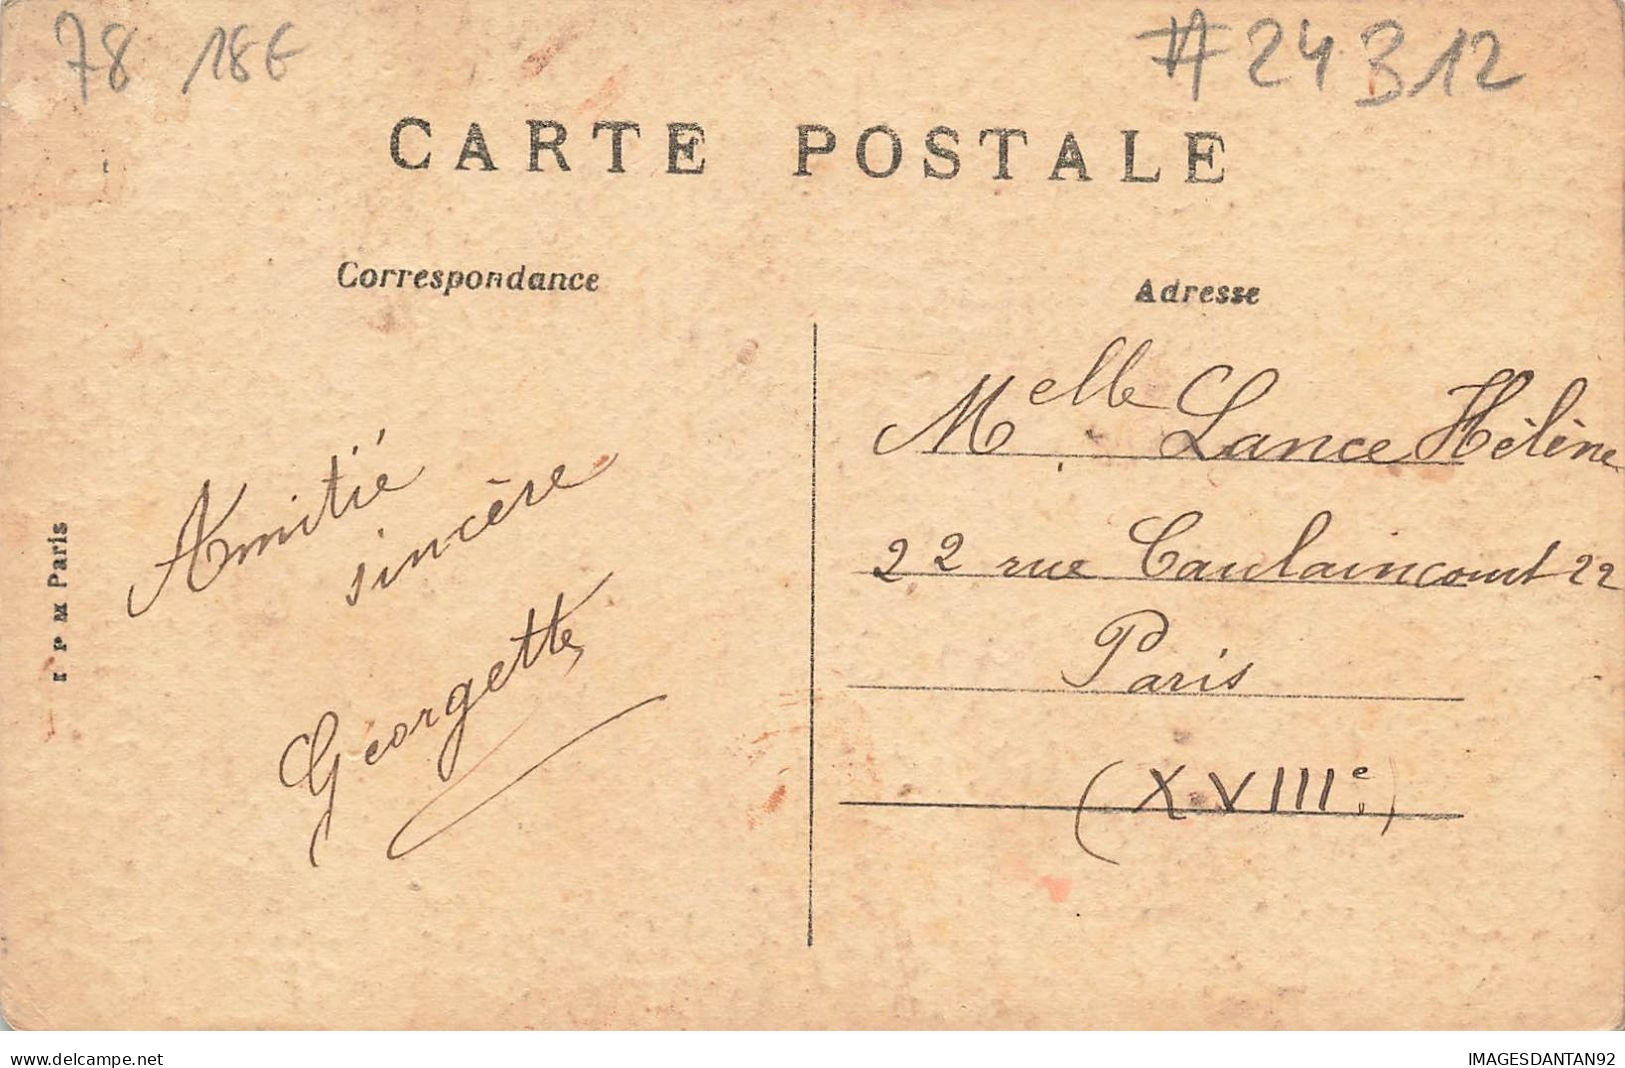 78 18€
#24312
CARTE POSTALE
Correspondance
Adresse
Amitié
sincère
Georgette
Melle Lance Hélène
22 rue Caulaincourt 22
Paris
(XVIIIe)
I P M Paris
www.delcampe.net
IMAGESDANTAN92